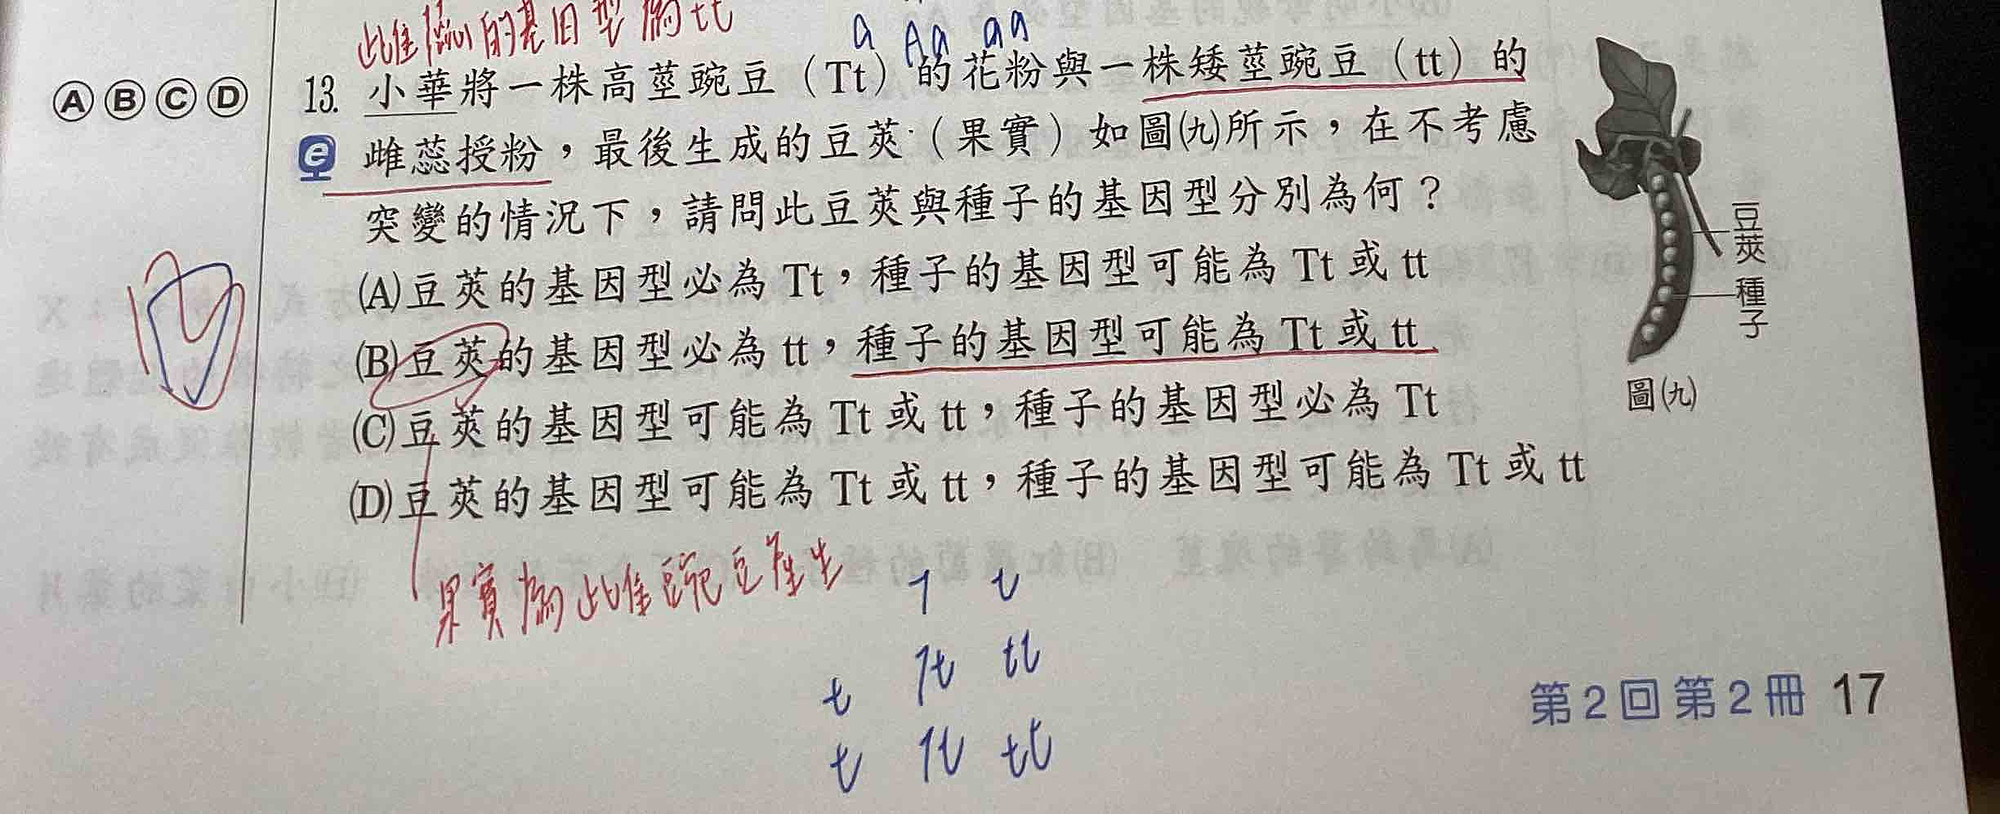 此雌蕊的基因型為tt
a Aa aa
Ⓐ Ⓑ Ⓒ Ⓓ 13. 小華將一株高莖豌豆（Tt）的花粉與一株矮莖豌豆（tt）的
e 雌蕊授粉，最後生成的豆莢（果實）如圖㈨所示，在不考慮
突變的情況下，請問此豆莢與種子的基因型分別為何？
(A)豆莢的基因型必為 Tt，種子的基因型可能為 Tt 或 tt
(B)豆莢的基因型必為 tt，種子的基因型可能為 Tt 或 tt
(C)豆莢的基因型可能為 Tt 或 tt，種子的基因型必為 Tt
(D)豆莢的基因型可能為 Tt 或 tt，種子的基因型可能為 Tt 或 tt
豆莢
種子
圖㈨
果實為此雌豌豆產生
T t
t Tt tt
t Tt tt
第2回第2冊 17